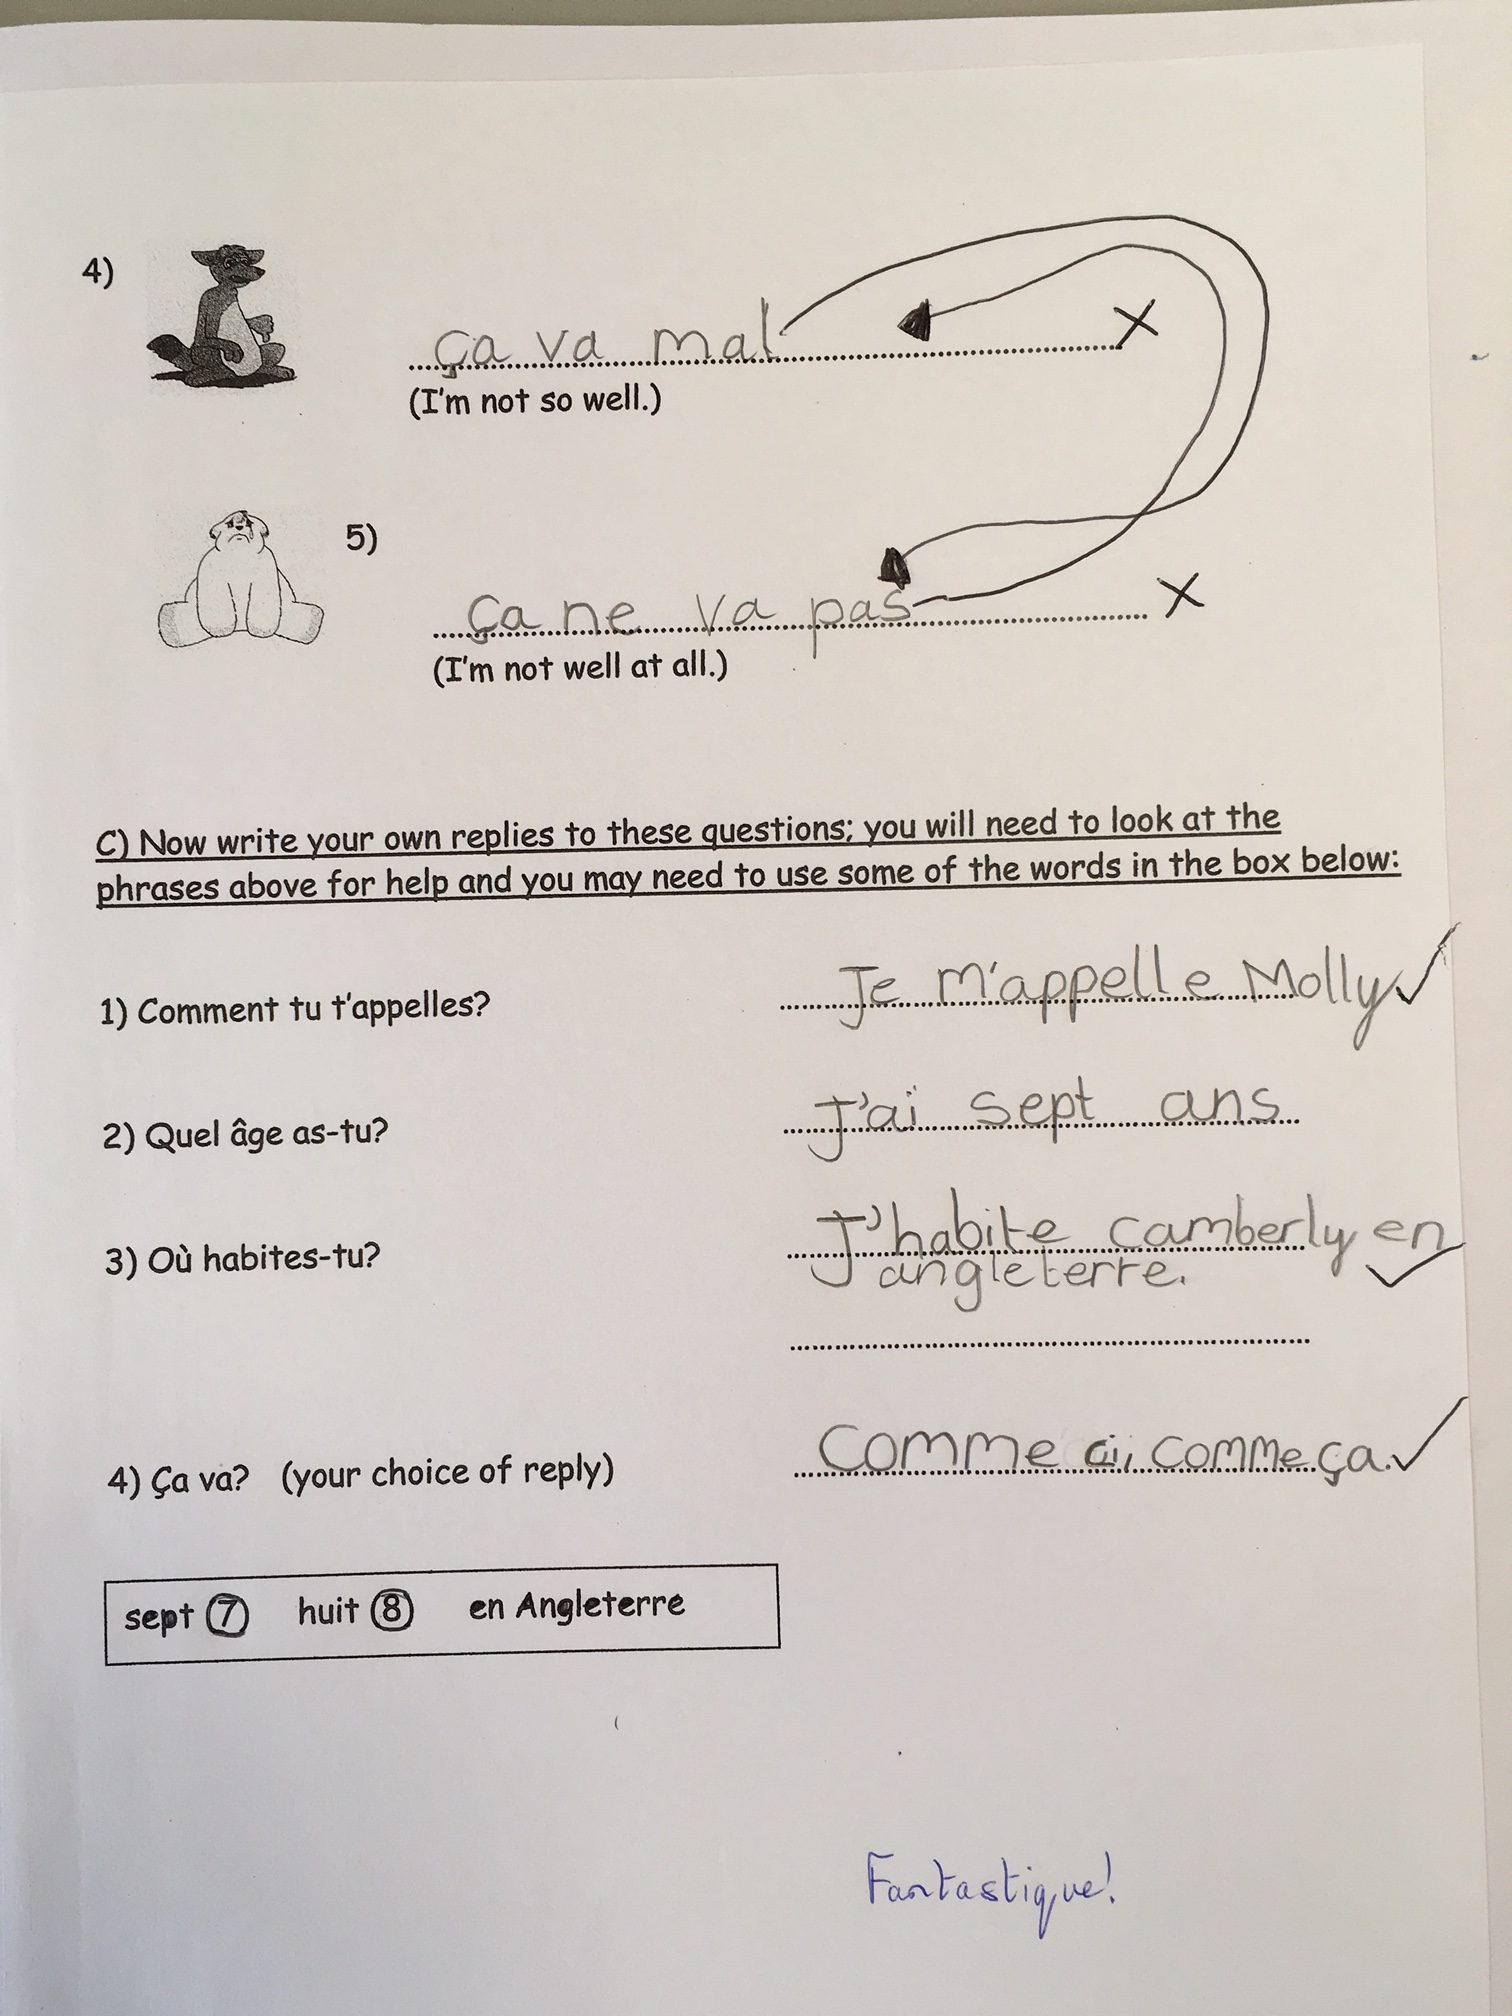 4)
ça va mal X
(I'm not so well.)
5)
ça ne va pas X
(I'm not well at all.)
C) Now write your own replies to these questions; you will need to look at the
phrases above for help and you may need to use some of the words in the box below:
1) Comment tu t'appelles? Je m'appelle Molly ✓
2) Quel âge as-tu? J'ai sept ans
3) Où habites-tu? J'habite camberly en
angleterre. ✓
4) Ça va? (your choice of reply) Comme ci, comme ça. ✓
sept 7 huit 8 en Angleterre
Fantastique!